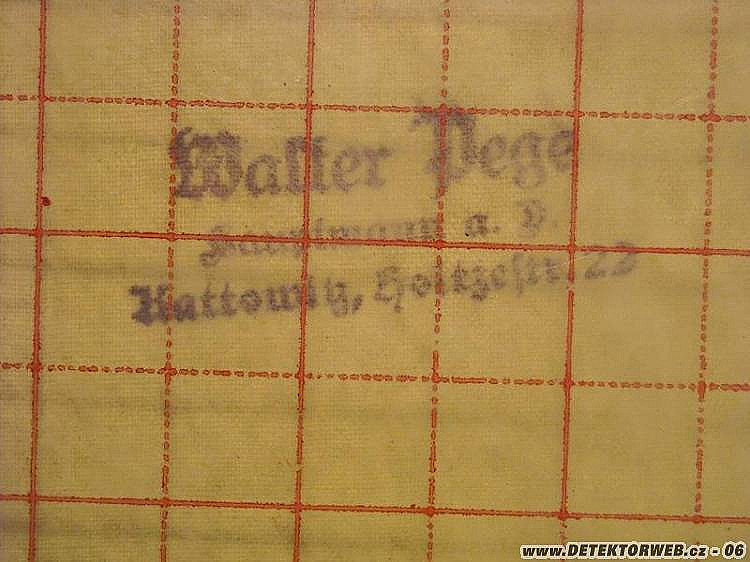 Walter Pege
Hauptmann a. D.
Kattowitz, Holtzestr. 23
www.DETEKTORWEB.cz - 06